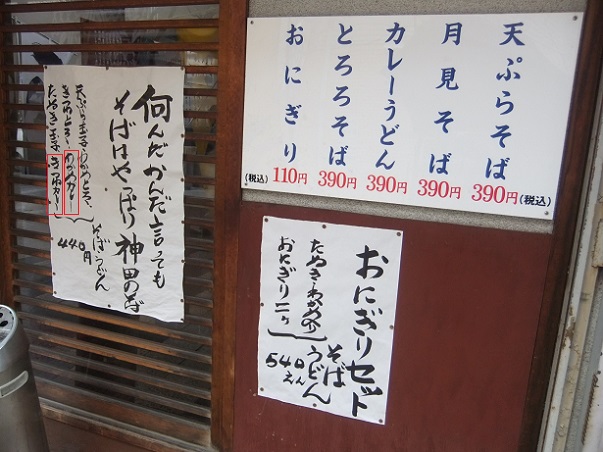 天ぷらそば
390円(税込)
月見そば
390円
カレーうどん
390円
とろろそば
390円
おにぎり
(税込)110円
何んだかんだ言っても
そばはやっぱり神田のそば
天ぷら玉子・わかめとろろ
きつねとろろ わかめカレー
たぬき玉子 きつねカレー
そば・うどん
440円
おにぎりセット
たぬき・わかめの
おにぎり二ヶ
そば
うどん
540えん